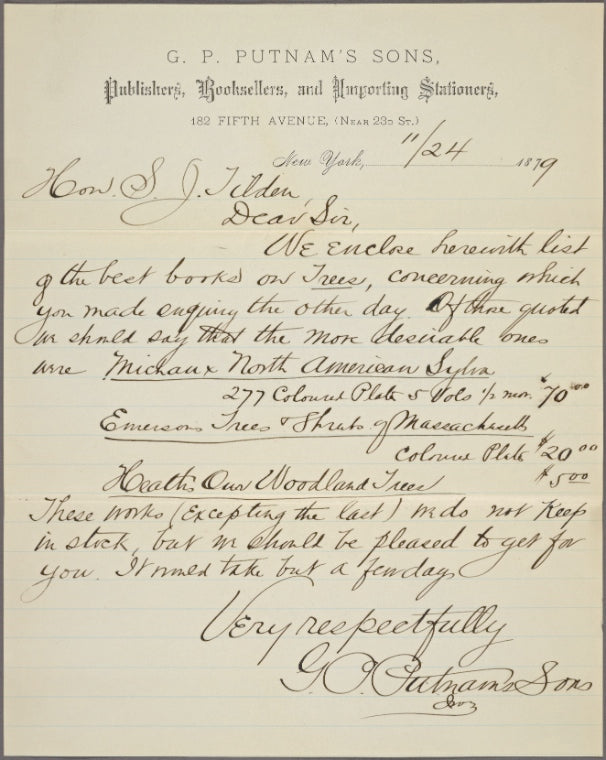 G. P. PUTNAM'S SONS,
Publishers, Booksellers, and Importing Stationers,
182 FIFTH AVENUE, (NEAR 23D ST.)
New York, 11/24 1879
Hon. S. J. Tilden,
Dear Sir,
We enclose herewith list
of the best books on Trees, concerning which
you made enquiry the other day. Of those quoted
we should say that the more desirable ones
were Michaux North American Sylva
277 Coloured Plate 5 Vols 1/2 mor. $70.00
Emersons Trees & Shrubs of Massachusetts
Coloured Plate $20.00
Heaths Our Woodland Trees $5.00
These works (excepting the last) we do not keep
in stock, but we should be pleased to get for
you. It would take but a few days
Very respectfully
G. P. Putnam's Sons